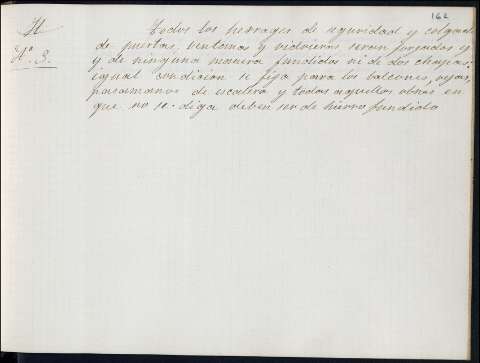 162
H
Nº 3.
Todos los herrages de seguridad y colgado
de puertas, ventanas y vidrieras, seran forjados
y de ninguna manera fundidos ni de dos chapas:
igual condicion se fija para los balcones,
pasamanos de escalera y todas aquellas obras en
que no se diga deben ser de hierro fundido